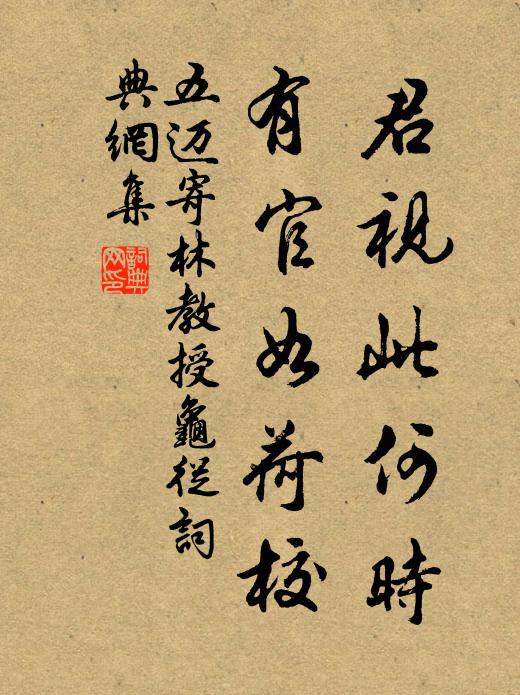 君視此何時
有官如荷校
五迈寄林教授龜從詞
典網集
詞典網印